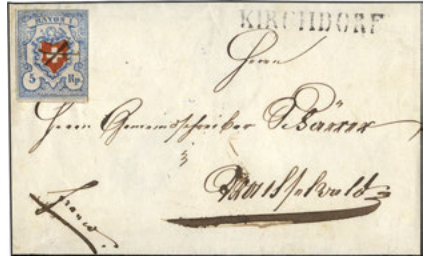 RAYON I.
5 Rp.
KIRCHDORF
Herrn
Herrn Gemeindschreiber
Franco